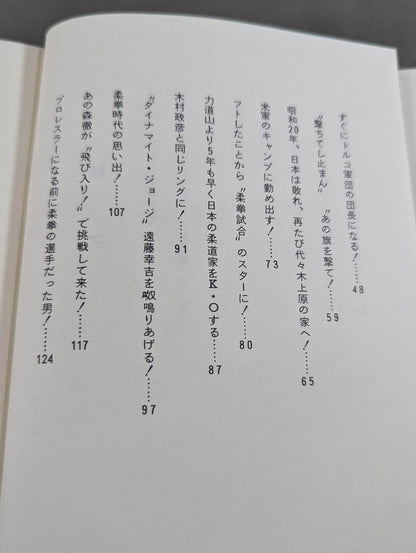 すぐにドルコ軍団の団長になる！……48
〝撃ちてし止まん〟〝あの旗を撃て！〟……59
昭和20年、日本は敗れ、再たび代々木上原の家へ！……65
米軍のキャンプに勤め出す！……73
フトしたことから〝柔拳試合〟のスターに！……80
力道山より5年も早く日本の柔道家をK・Oする……87
木村政彦と同じリングに！……91
〝ダイナマイト・ジョージ〟遠藤幸吉を怒鳴りあげる！……97
柔拳時代の思い出！……107
あの森徹が〝飛び入り！〟で挑戦して来た！……117
プロレスラーになる前に柔拳の選手だった男！……124